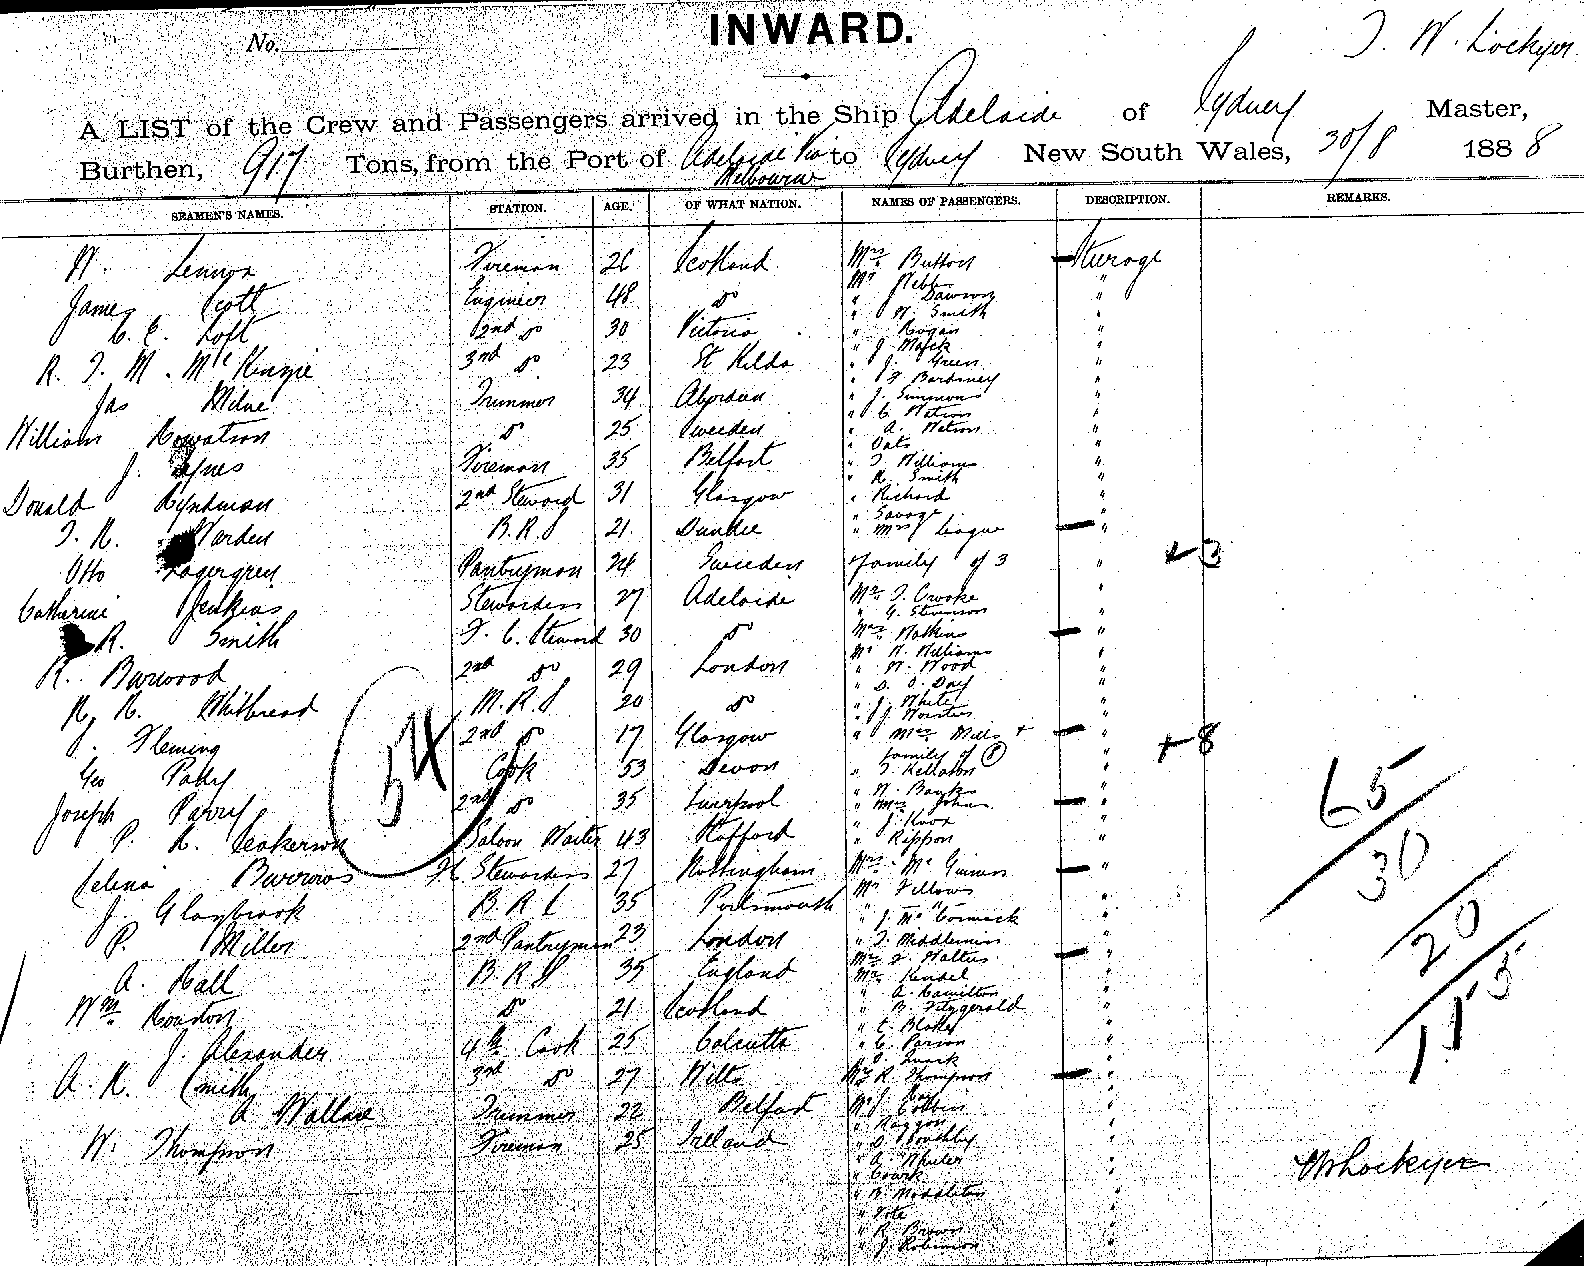 INWARD.
No.
T. W. Lockyer
A LIST of the Crew and Passengers arrived in the Ship Adelaide of Sydney Master,
Burthen, 917 Tons, from the Port of Adelaide Via Melbourne to Sydney New South Wales, 30/8 1888
SEAMEN'S NAMES. STATION. AGE. OF WHAT NATION. NAMES OF PASSENGERS. DESCRIPTION. REMARKS.
W. Lennox Fireman 26 Scotland
James Scott Engineer 48 do
C. E. Loft 2nd do 30 Victoria
R. T. M. McKenzie 3rd do 23 St Kilda
Jas Milne Trimmer 34 Aberdeen
William Rowatson do 25 Sweden
J. Fireman 35 Belfast
Donald Hyndman 2nd Steward 31 Glasgow
T. R. Warden B.R.S 21 Dundee
Otto Lagergren Pantryman 24 Sweden
Catharine Jenkins Stewardess 27 Adelaide
R. Smith F. C. Steward 30 do
R. Burwood 2nd do 29 London
Whitbread M.R.S 20 do
J. Fleming 2nd do 17 Glasgow
Geo Patey Cook 53 Devon
Joseph Parry 2nd do 35 Liverpool
P. H. Saloon Waiter 43 Stafford
Selina Burrows Stewardess 27 Nottingham
J. Glazbrook B R S 35 Portsmouth
P. Miller 2nd Pantryman 23 London
A. Hall B.R.S 35 England
Wm Houston do 21 Scotland
J. Alexander 4th Cook 25 Calcutta
A. H. Smith 3rd do 27 Wilts
A Wallace Trimmer 22 Belfast
W. Thompson Fireman 25 Ireland
54
Mrs Button Steerage
Mr Webb "
" J Dawson "
" W Smith "
" Hogan "
" J Mack "
" J. Green "
" J Bardsney "
" J. Simmons "
" C. Watson "
" A. Watson "
" Oats "
" T Williams "
" H. Smith "
" Richard "
" Savage "
" Mrs League "
family of 3 " + 3
Mr T. Crooke "
" G. Stevenson "
Mrs Watkins "
Mr W. Williams "
" W. Wood "
" D. O. Day "
" J. White "
" J. "
" Mrs Mills + "
family of 8 + 8
" T. Kellaton "
" W. Banks "
" Mrs Johns "
" J. Knox "
" Rippon "
Mrs Mc Guiness "
Mr Fellows "
" J. McCormack "
" T. Middlemiss "
Mrs F. Walters "
Mr Kendel "
" A. Hamilton "
" B. Fitzgerald "
" C. Blake "
" C. Parson "
" "
Mrs R. Thompson "
Mr J. Cobbin "
" "
" D. Boothby "
" A. "
" "
" B. Middleton "
" "
" R. Brown "
" J. Robinson "
65
30
20
115
TWLockyer